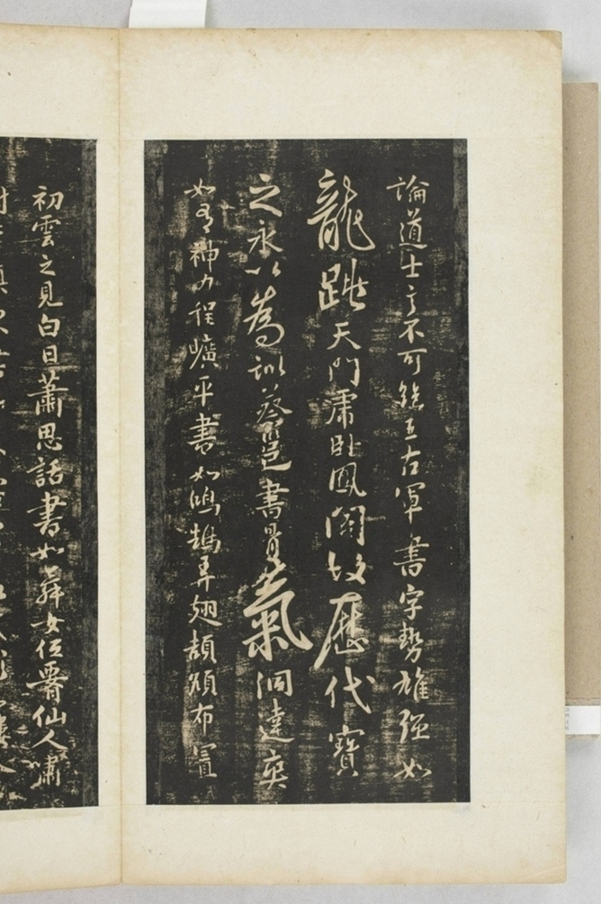 論道士言不可絕王右軍書字勢雄强如
龍跳天門虎臥鳳閣故歷代寶
之永以為訓蔡邕書骨氣洞達爽
如有神力程曠平書如鴻鵠弄翅頡頏布置
初雲之見白日蕭思話書如舞女低腰仙人嘯